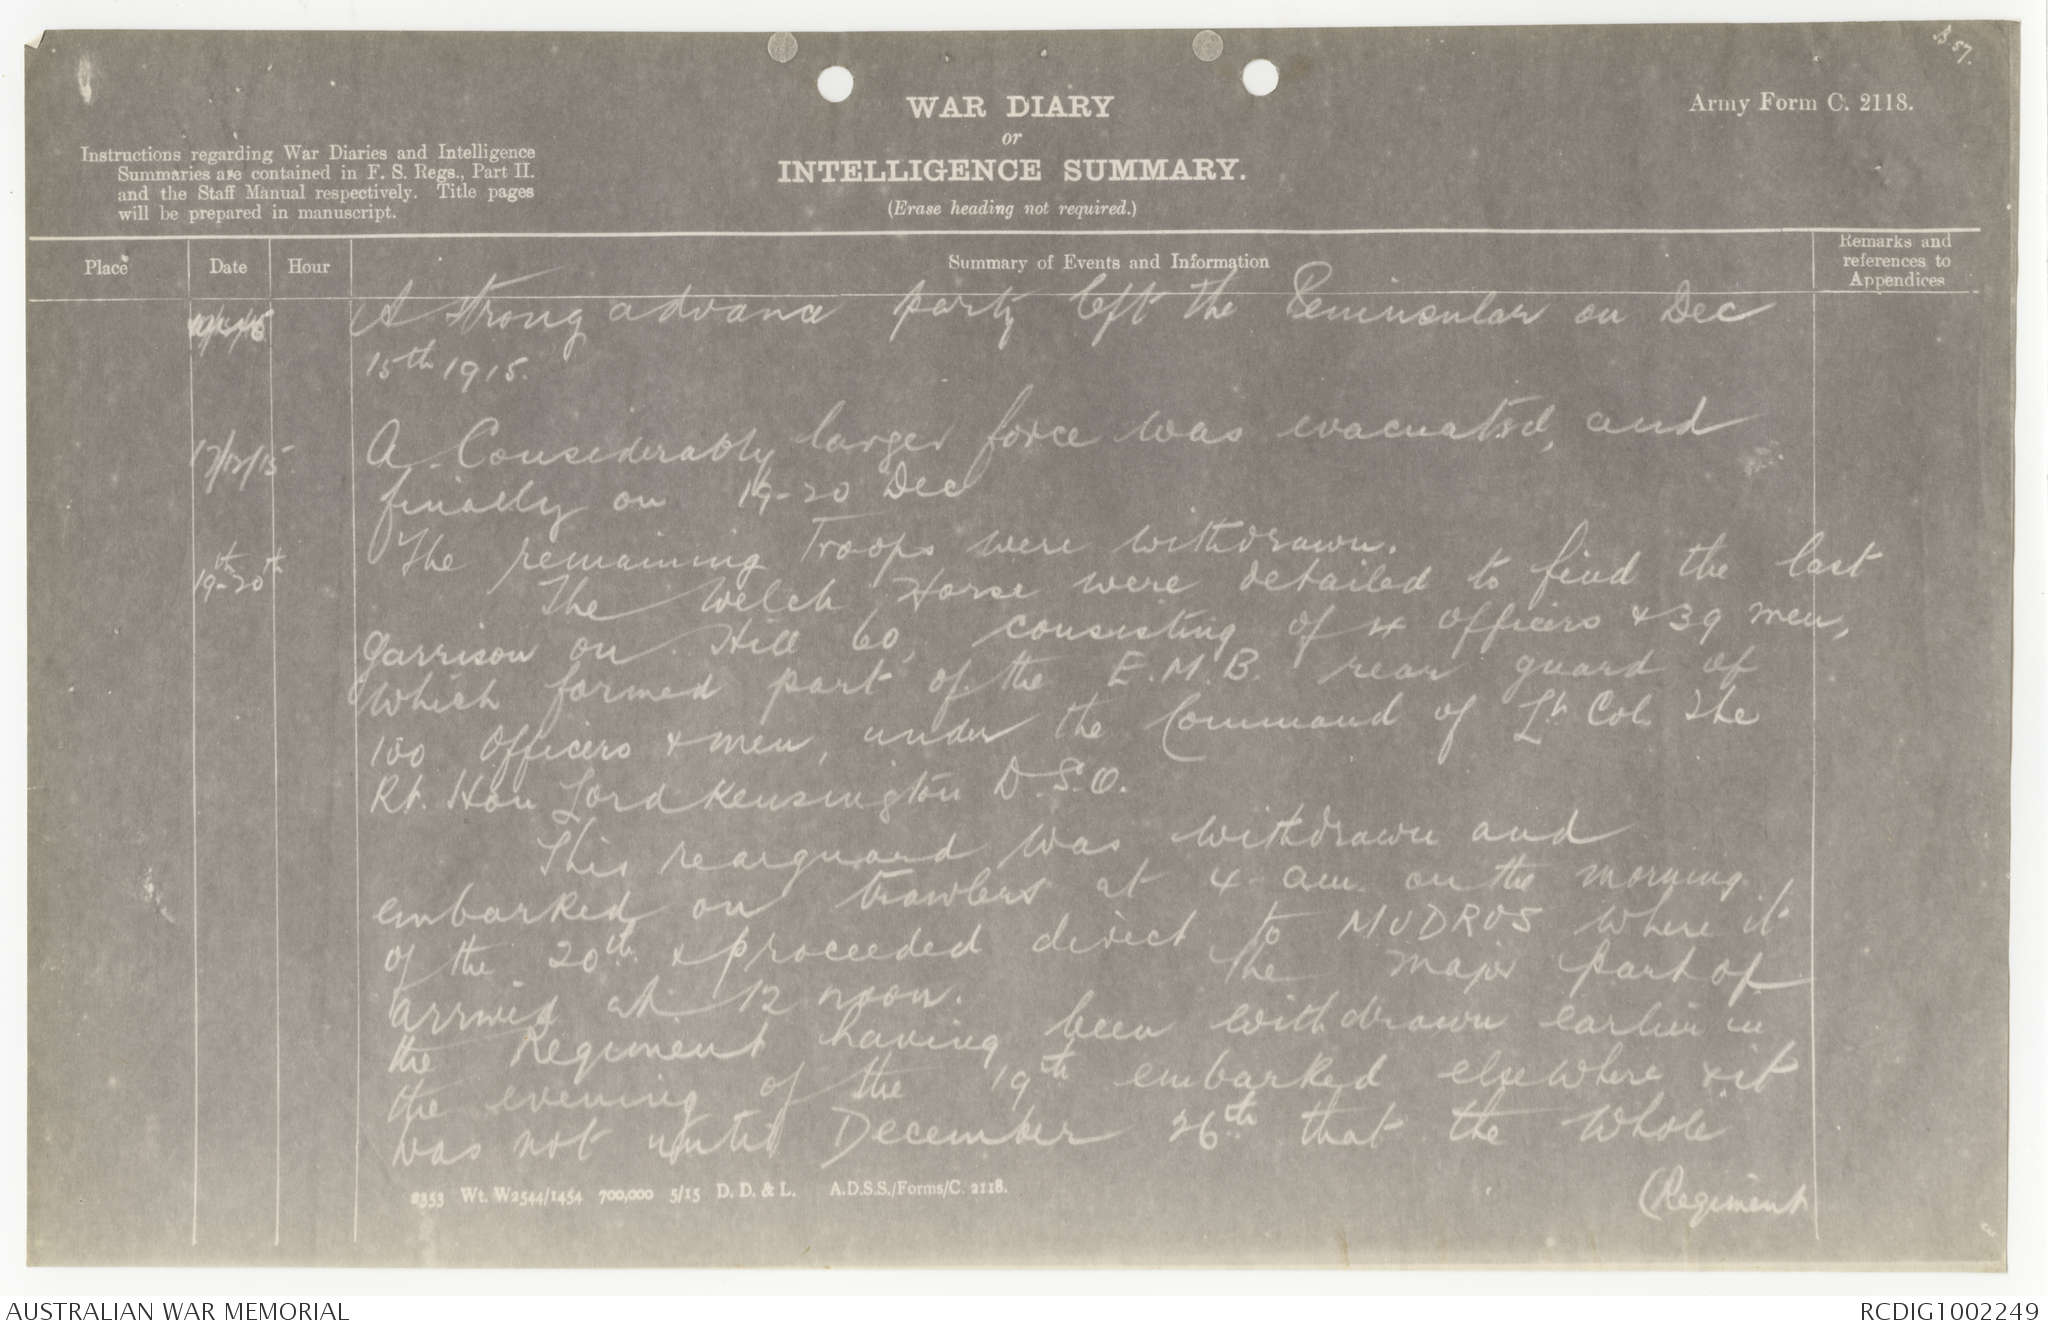 B 57.
WAR DIARY
or
INTELLIGENCE SUMMARY.
(Erase heading not required.)
Army Form C. 2118.
Instructions regarding War Diaries and Intelligence
Summaries are contained in F. S. Regs., Part II.
and the Staff Manual respectively. Title pages
will be prepared in manuscript.
Place Date Hour Summary of Events and Information Remarks and
references to
Appendices
A strong advance party left the Peninsular on Dec
15th 1915.
17/12/15 A Considerably larger force was evacuated, and
finally on 19-20 Dec
19th-20th The remaining Troops were withdrawn.
The Welch Horse were detailed to find the last
garrison on Hill 60, consisting of 4 officers & 39 men,
which formed part of the E.M.B. rear guard of
100 Officers & men, under the Command of Lt Col The
Rt. Hon Lord Kensington D.S.O.
This rearguard was withdrawn and
embarked on trawlers at 4 am on the morning
of the 20th & proceeded direct to MUDROS where it
arrived at 12 noon. The major part of
the Regiment having been withdrawn earlier in
the evening of the 19th embarked elsewhere & it
was not until December 26th that the whole
(Regiment
2353 Wt. W2544/1454 700,000 5/15 D. D. & L. A.D.S.S./Forms/C. 2118.
AUSTRALIAN WAR MEMORIAL
RCDIG1002249